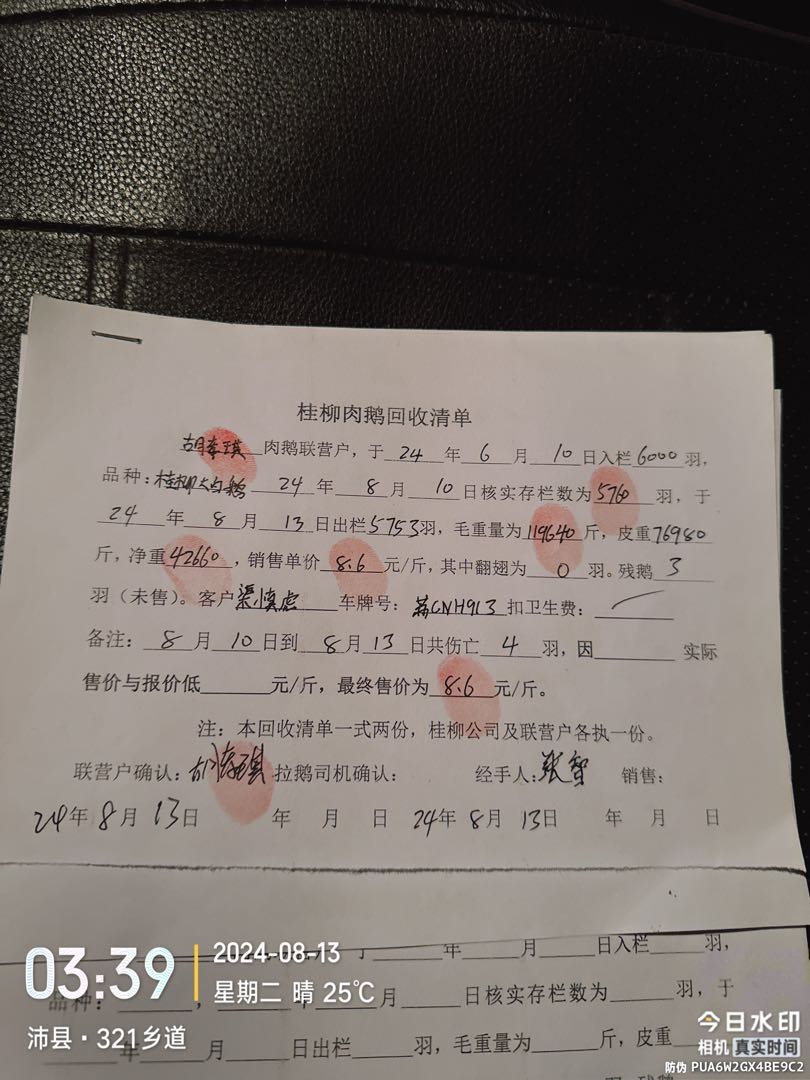 桂柳肉鹅回收清单
胡孝琪 肉鹅联营户，于 24 年 6 月 10 日入栏 6000 羽，
品种：桂柳大白鹅 24 年 8 月 10 日核实存栏数为 5760 羽，于
24 年 8 月 13 日出栏 5753 羽，毛重量为 119640 斤，皮重 76980
斤，净重 42660，销售单价 8.6 元/斤，其中翻翅为 0 羽。残鹅 3
羽（未售）。客户 渠慎虎 车牌号：苏CNH913 扣卫生费：
备注：8 月 10 日到 8 月 13 日共伤亡 4 羽，因 实际
售价与报价低 元/斤，最终售价为 8.6 元/斤。
注：本回收清单一式两份，桂柳公司及联营户各执一份。
联营户确认：胡孝琪 拉鹅司机确认： 经手人：张智 销售：
24年 8月 13日 年 月 日 24年 8月 13日 年 月 日
年 月 日入栏 羽，
品种： ， 年 月 日核实存栏数为 羽，于
年 月 日出栏 羽，毛重量为 斤，皮重
03:39 2024-08-13
星期二 晴 25℃
沛县·321乡道
今日水印
相机 真实时间
防伪 PUA6W2GX4BE9C2